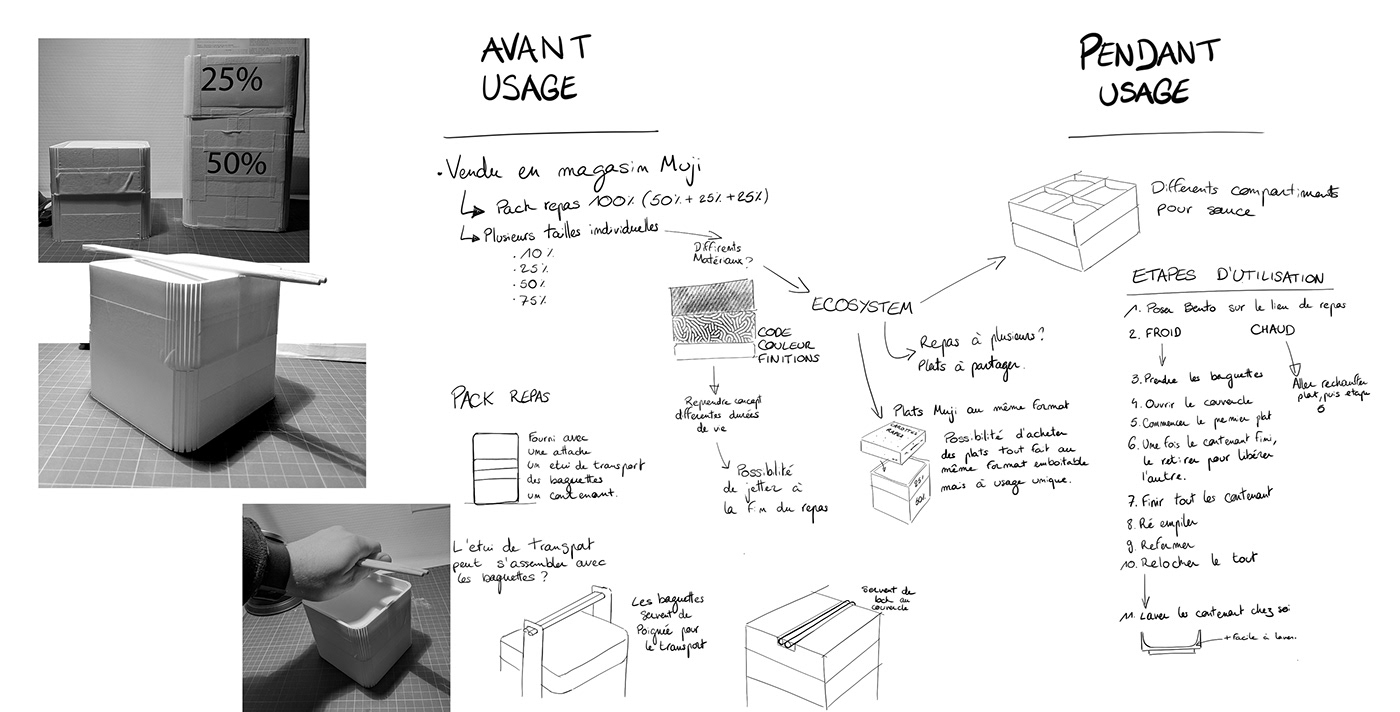 25%
50%
AVANT
USAGE
. Vendu en magasin Muji
Pack repas 100% (50% + 25% + 25%)
Plusieurs tailles individuelles
. 10 %
. 25 %
. 50 %
. 75 %
Différents
Matériaux ?
CODE
COULEUR
FINITIONS
Reprendre concept
différentes durées
de vie
Possibilité
de jetter à
la fin du repas
PACK REPAS
Fourni avec
une attache
un etui de transport
des baguettes
un contenant.
L'etui de transport
peut s'assembler avec
les baguettes ?
Les baguettes
servent de
Poignée pour
le transport
servent de
lock au
couvercle
ECOSYSTEM
Repas à plusieurs ?
Plats à partager.
Plats Muji au même format
CAROTTES
RAPEES
25%
50%
Possibilité d'acheter
des plats tout fait au
même format emboitable
mais à usage unique.
PENDANT
USAGE
Différents compartiments
pour sauce
ETAPES D'UTILISATION
1. Poser Bento sur le lieu de repas
2. FROID CHAUD
3. Prendre les baguettes
4. Ouvrir le couvercle
5. Commencer le premier plat
6. Une fois le contenant fini,
le retirer pour libérer
l'autre.
7. Finir tout les contenant
8. Ré empiler
9. Refermer
10. Relocker le tout
Aller rechauffer
plat, puis etape
6
11. Laver les contenant chez soi
+ facile à laver.